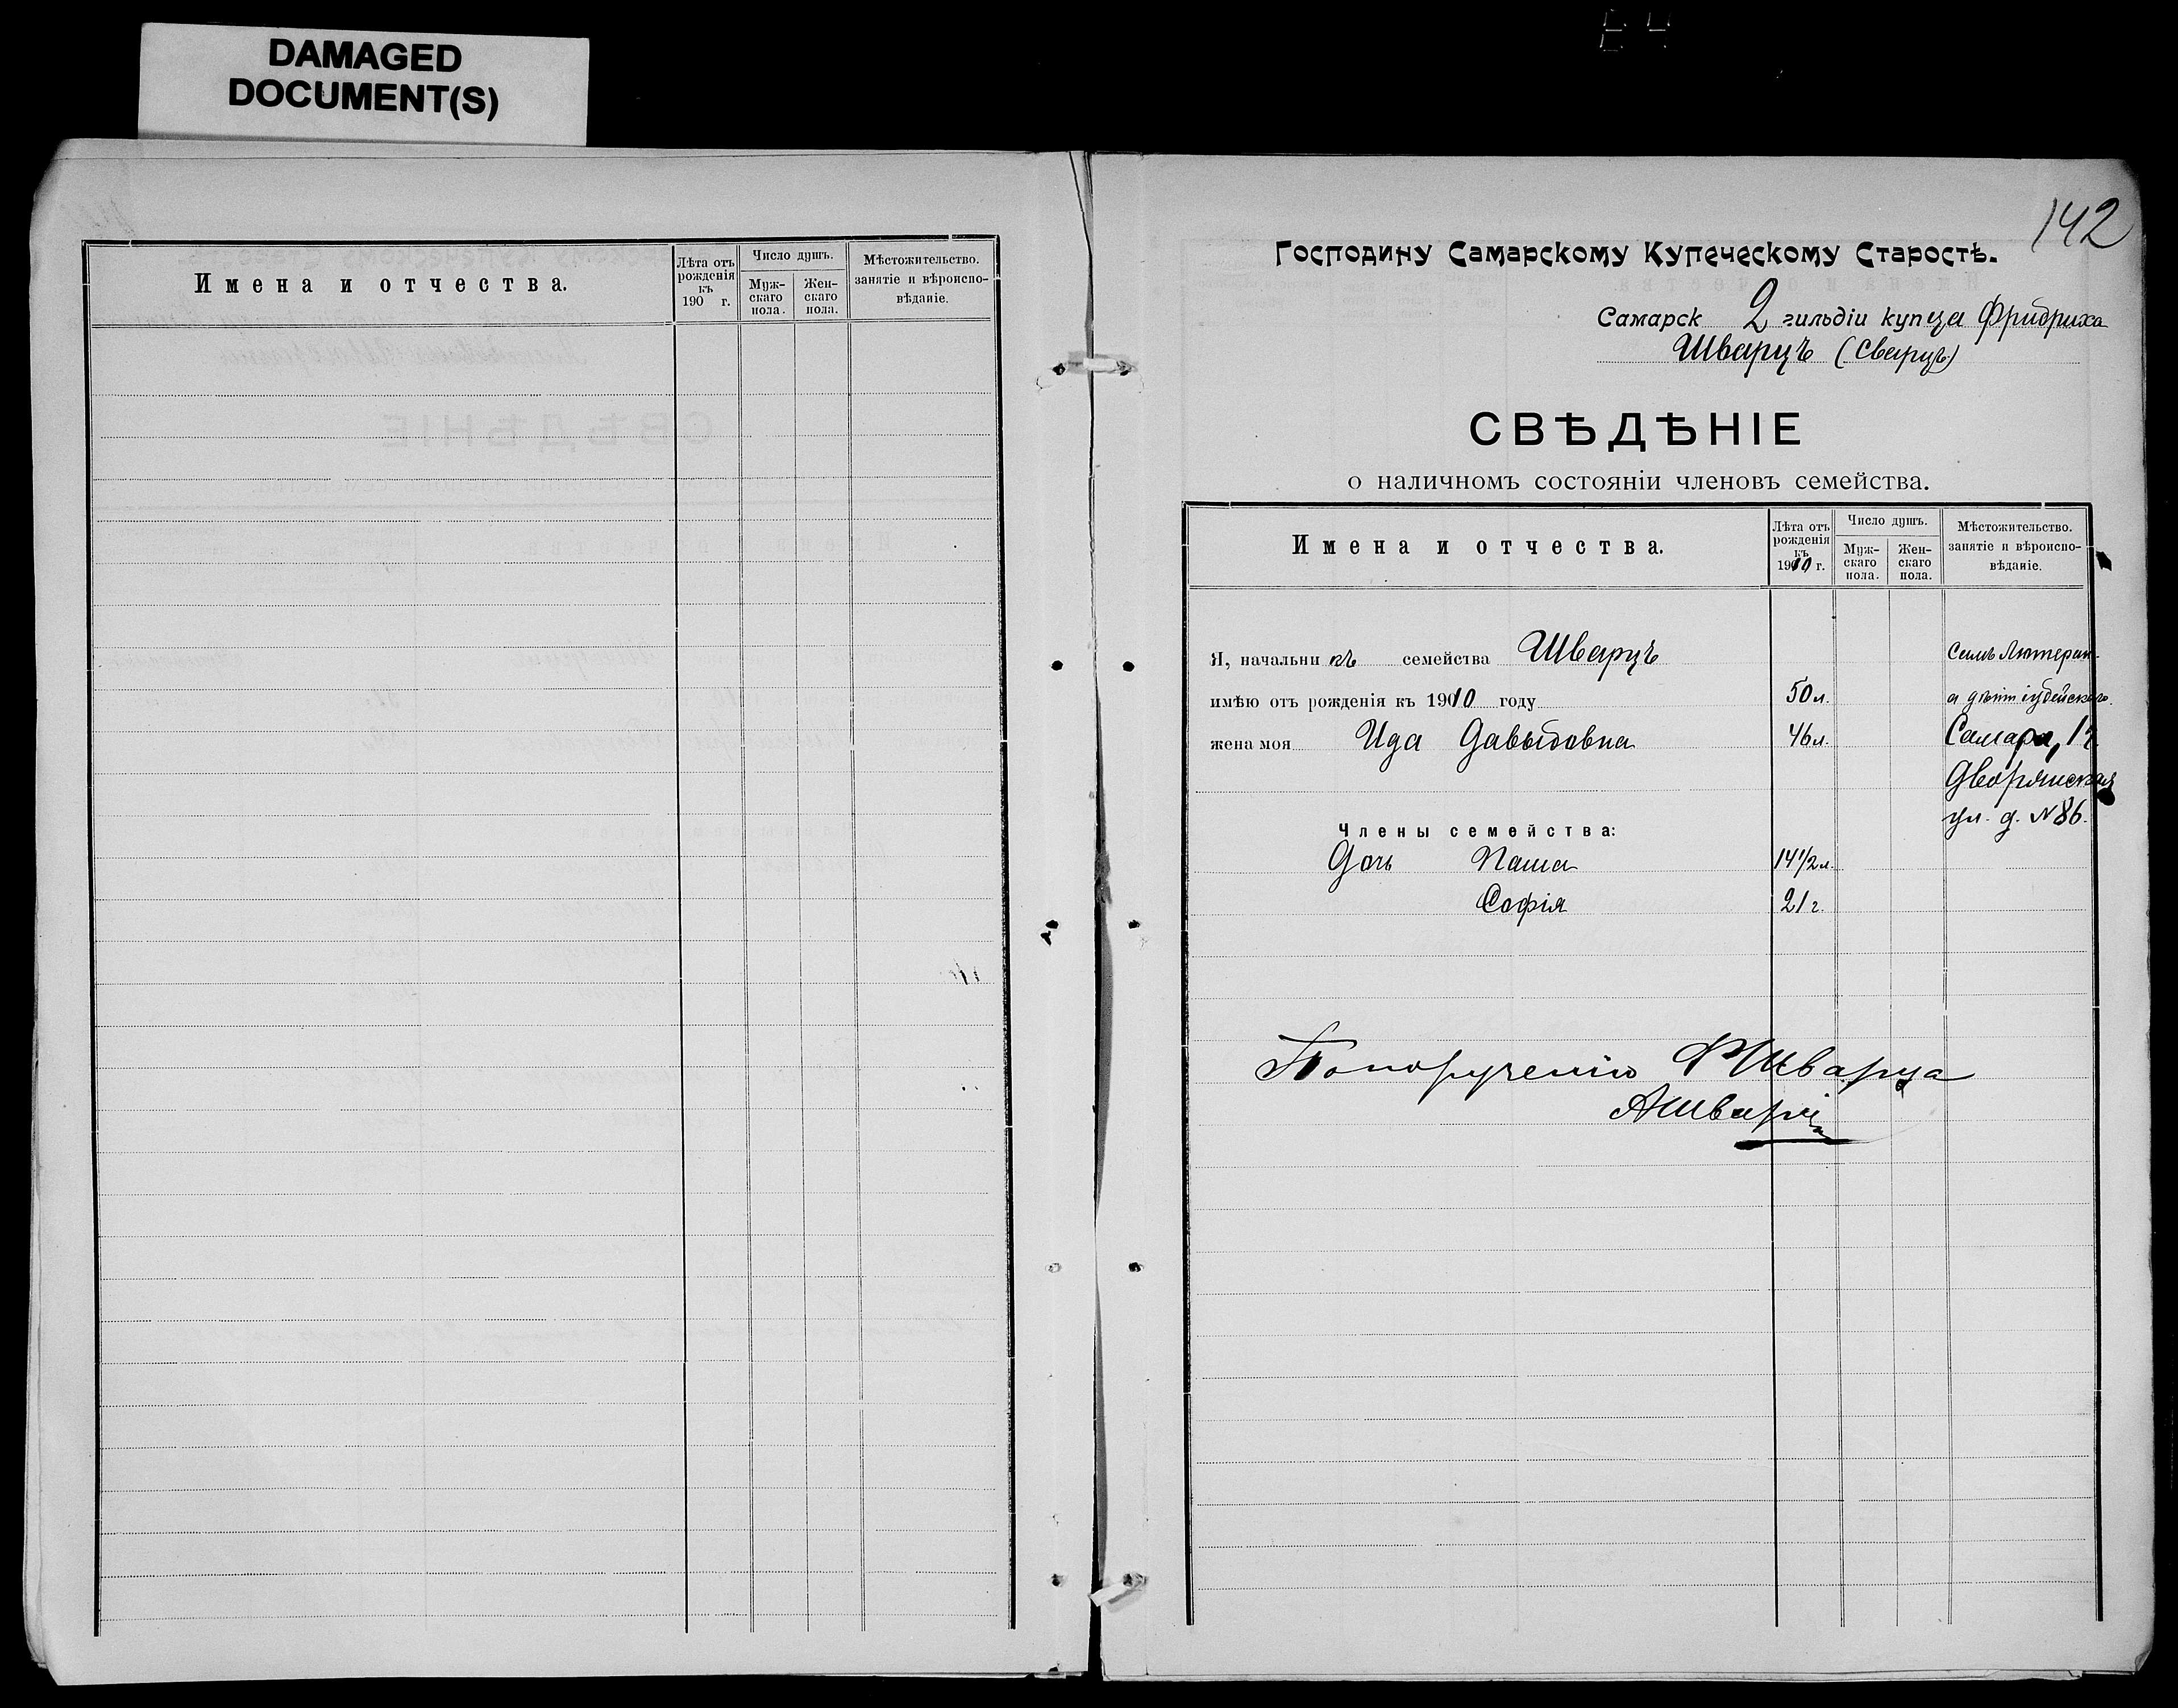 DAMAGED
DOCUMENT(S)
Имена и отчества.
Лѣта отъ рожденія къ 190 г.
Число душъ.
Мужскаго пола.
Женскаго пола.
Мѣстожительство. занятіе и вѣроисповѣданіе.
142
Господину Самарскому Купеческому Старостѣ.
Самарск 2 гильдіи купца Фридриха
Шварцъ (Сварцъ)
СВѢДѢНІЕ
о наличномъ состояніи членовъ семейства.
Имена и отчества.
Лѣта отъ
рожденія
къ
1910 г.
Число душъ.
Муж-
скаго
пола.
Жен-
скаго
пола.
Мѣстожительство.
занятіе и вѣроиспо-
вѣданіе.
Я, начальникъ семейства Шварцъ
Самъ Лютеран-
имѣю отъ рожденія къ 1910 году 50 л.
а дѣти іудейскаго
жена моя Ида Давыдовна 46 л.
Самара,
Дворянская
ул. д. № 86.
Члены семейства:
Дочь Паша 14 1/2 л.
Софія 21 г.
По порученію Ф Шварца
А Шварц